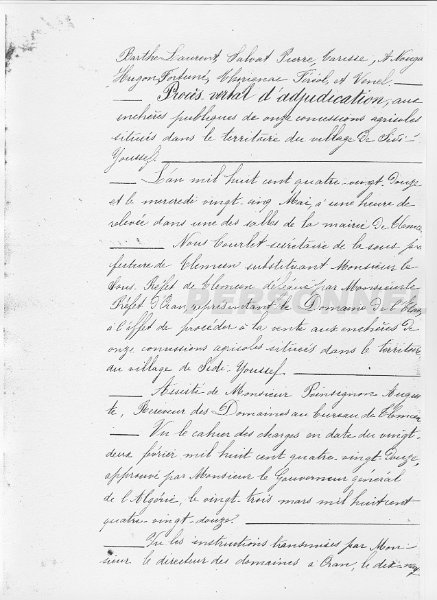 Barthe Laurent, Salvat Pierre, Carisse, A. Nouga
Hugon Fortuné, Chavignac Féréol, et Venel.
Procès verbal d'adjudication, aux
enchères publiques de onze concessions agricoles
situées dans le territoire du village de Sidi-
Youssef.
L'an mil huit cent quatre-vingt-douze
et le mercredi vingt-cinq Mai, à une heure de
relevée dans une des salles de la mairie de Tlemcen
Nous Courlet secrétaire de la sous pré
fecture de Tlemcen substituant Monsieur le
Sous-Préfet de Tlemcen délégué par Monsieur le
Préfet d'Oran, représentant le Domaine de l'Etat
à l'effet de procéder à la vente aux enchères de
onze concessions agricoles situées dans le territoire
du village de Sidi-Youssef
Assisté de Monsieur Poinsegnon Augus
te, Receveur des Domaines au bureau de Tlemcen
Vu le cahier des charges en date du vingt-
deux février mil huit cent quatre-vingt-douze,
approuvé par Monsieur le Gouverneur général
de l'Algérie, le vingt trois mars mil huit cent
quatre-vingt-douze.
Vu les instructions transmises par Mon-
sieur le directeur des domaines à Oran, le dix-neuf